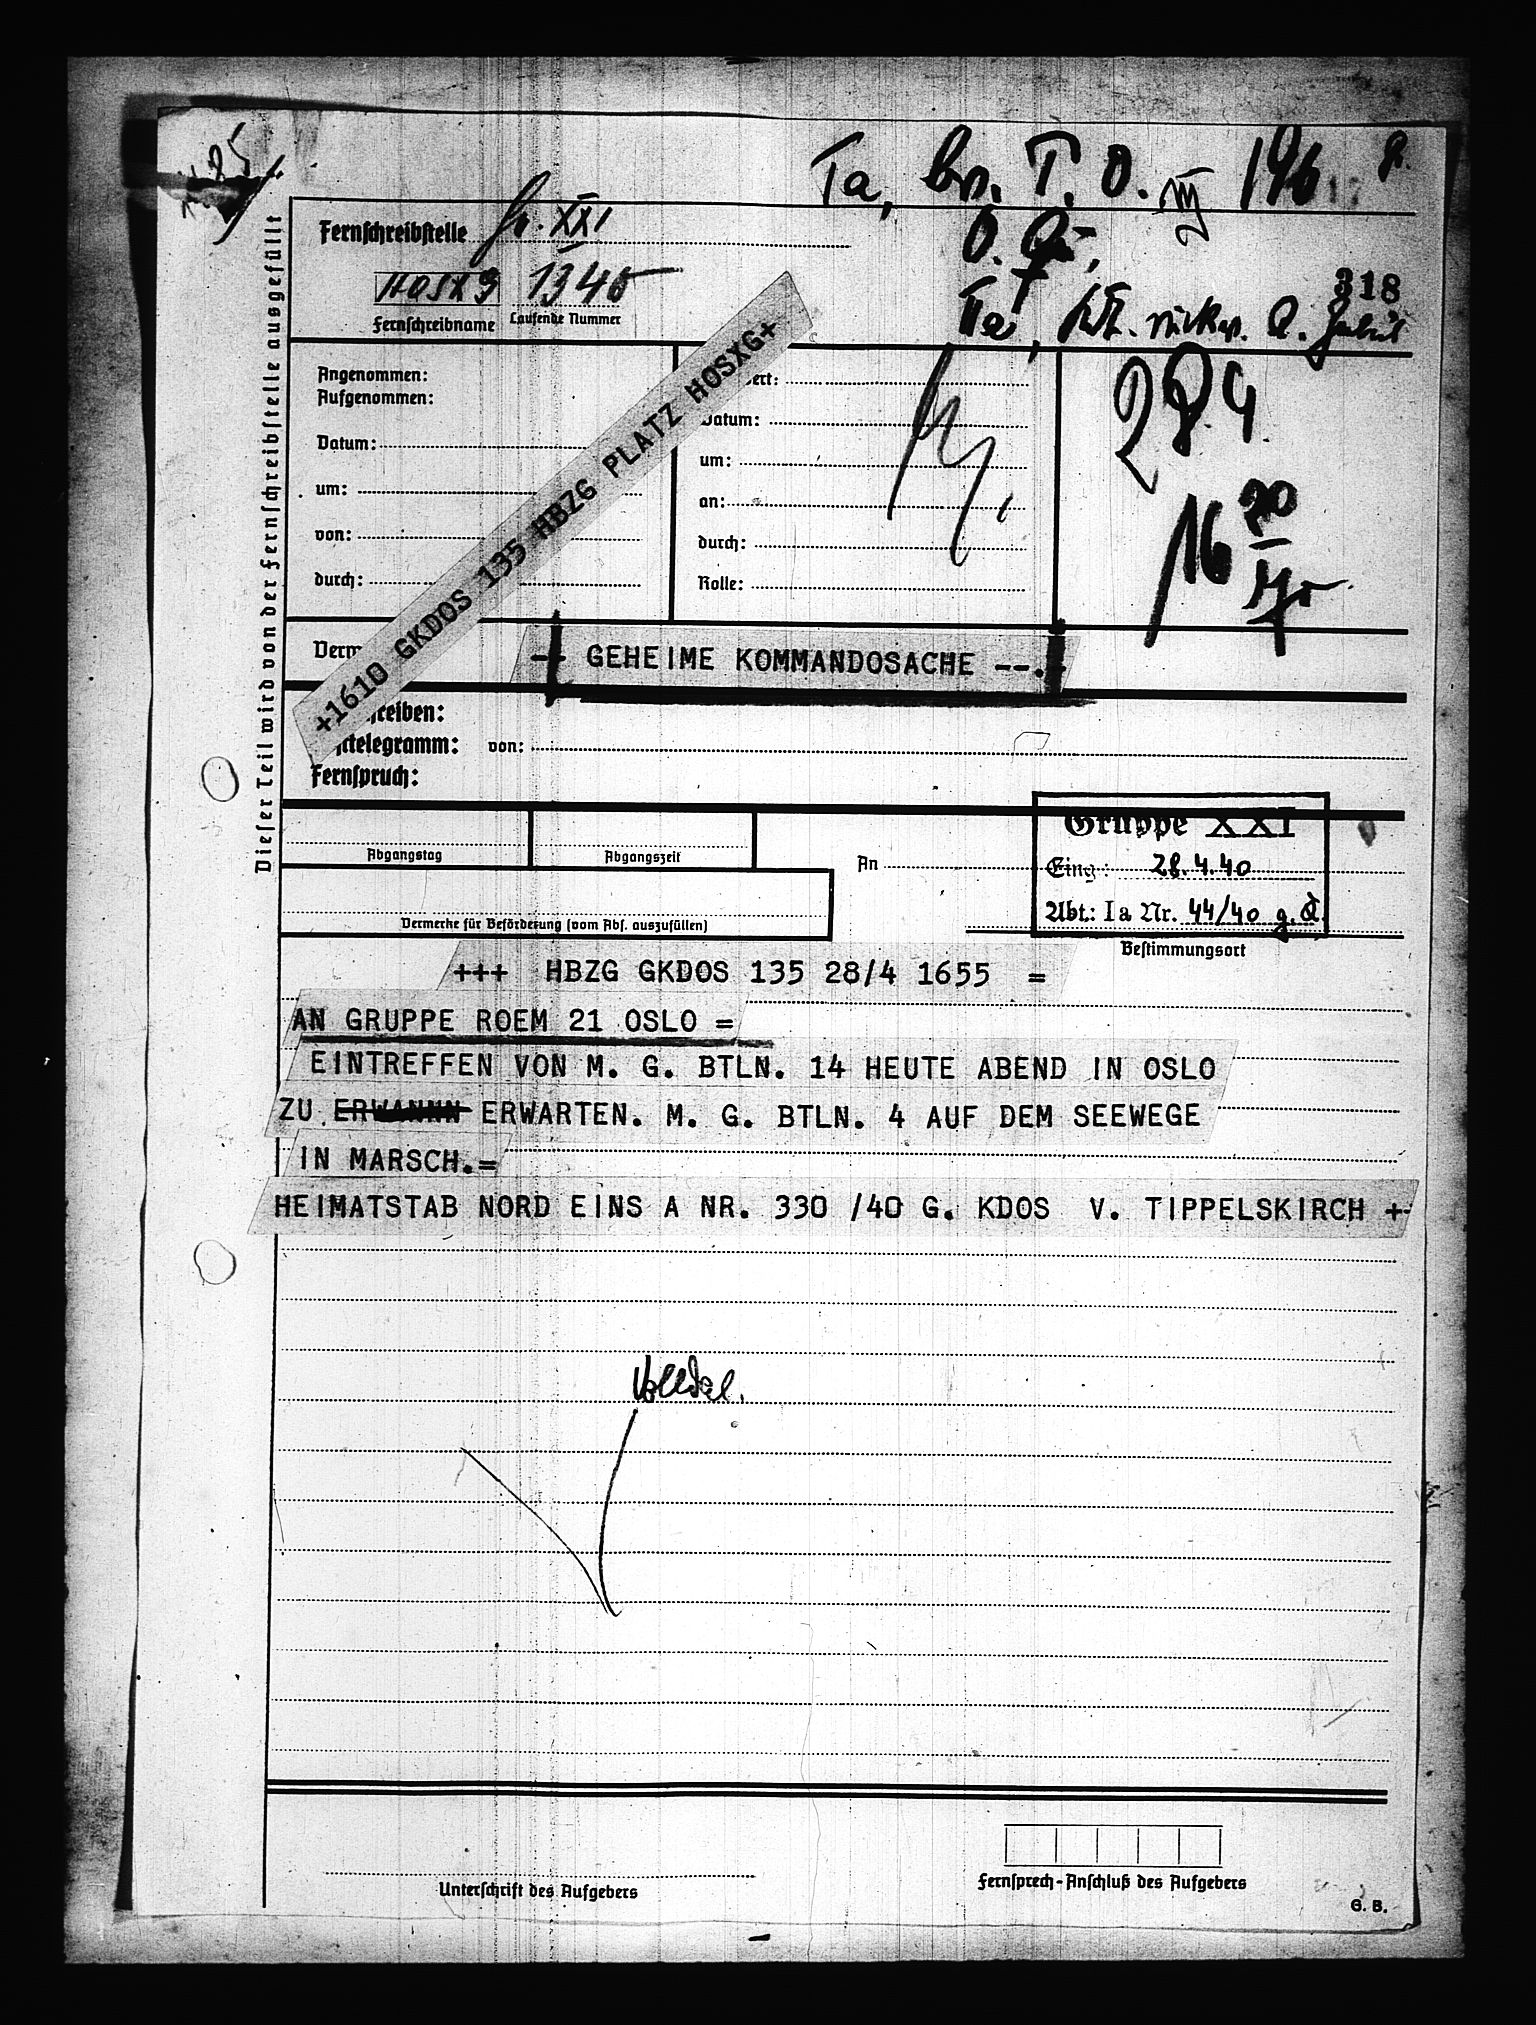 318
Fernschreibstelle Gr. XXI
HOSXG 1340
Fernschreibname Laufende Nummer
Dieser Teil wird von der Fernschreibstelle ausgefüllt
Angenommen:
Aufgenommen:
Datum:
um:
von:
durch:
Datum:
um:
an:
durch:
Rolle:
28.4.
16
+1610 GKDOS 135 HBZG PLATZ HOSXG+
Verm
-- GEHEIME KOMMANDOSACHE --.
reiben:
telegramm: von:
Fernspruch:
Abgangstag
Abgangszeit
An
Gruppe XXI
Eing: 28.4.40
Abt.: Ia Nr. 44/40 g.
Vermerke für Beförderung (vom Abs. auszufüllen)
Bestimmungsort
+++ HBZG GKDOS 135 28/4 1655 =
AN GRUPPE ROEM 21 OSLO =
EINTREFFEN VON M. G. BTLN. 14 HEUTE ABEND IN OSLO
ZU ERWANNN ERWARTEN. M. G. BTLN. 4 AUF DEM SEEWEGE
IN MARSCH.=
HEIMATSTAB NORD EINS A NR. 330 /40 G. KDOS V. TIPPELSKIRCH +
Unterschrift des Aufgebers
Fernsprech-Anschluß des Aufgebers
G. B.